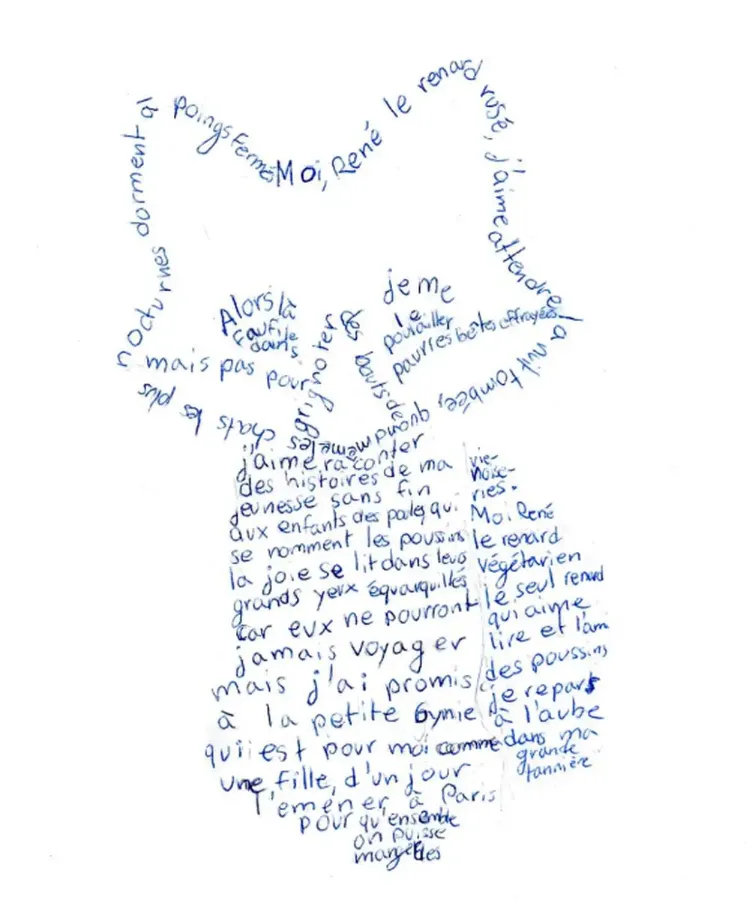 Moi, René le renard
rusé, j'aime attendre
la nuit tombée, quand même les chats les plus
nocturnes dorment à
poings fermé
Alors là
je me
faufile
dans
le
poulailler
mais pas pour
grignoter
des bouts de
pauvres bêtes effrayées
j'aime raconter
des histoires de ma
jeunesse sans fin
aux enfants des poules qui
se nomment les poussins
la joie se lit dans leurs
grands yeux équarquillés
car eux ne pourront
jamais voyager
mais j'ai promis
à la petite Gynie
qui est pour moi comme
une fille, d'un jour
l'eméner à Paris
pour qu'ensemble
on puisse
manger des
vie-
noise-
ries.
Moi René
le renard
végétarien
le seul renard
qui aime
lire et l'am
des poussins
je repars
à l'aube
dans ma
grande
tannière